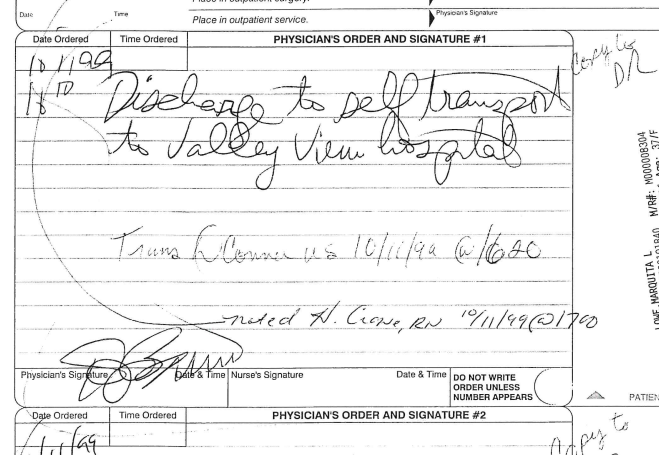 Place in outpatient surgery.
Date Time Place in outpatient service. Physician's Signature
Date Ordered Time Ordered PHYSICIAN'S ORDER AND SIGNATURE #1
10/11/99
Discharge to self transport
to Valley View hospital
Copy to
Trans R Conner US 10/11/99 @ 1620
noted N. Crone, RN 10/11/99 @ 1700
Physician's Signature Date & Time Nurse's Signature Date & Time DO NOT WRITE
ORDER UNLESS
NUMBER APPEARS
PATIEN
LOWE, MARQUITA L
M/R#: M000008304
37/F
Date Ordered Time Ordered PHYSICIAN'S ORDER AND SIGNATURE #2
/11/99
Copy to